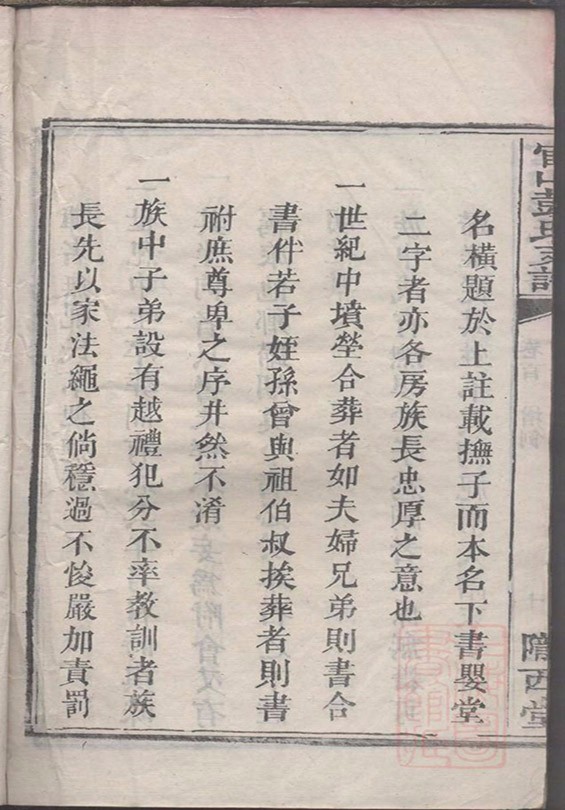 彭氏支譜
隴西堂
名橫題於上註載撫子而本名下書嬰堂
二字者亦各房族長忠厚之意也
一世紀中墳塋合葬者如夫婦兄弟則書合
書件若子姪孫曾與祖伯叔挨葬者則書
祔庶尊卑之序井然不淆
一族中子弟設有越禮犯分不率教訓者族
長先以家法繩之倘穩過不悛嚴加責罰